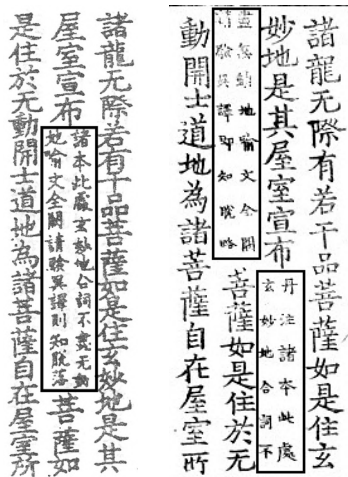 諸龍无際有若干品菩薩如是住玄
妙地是其屋室宣布
丹注諸本此處
玄妙地合詞不
盡無動地喻文全闕
請驗異譯即知脫略
菩薩如是住於无
動開士道地為諸菩薩自在屋室所
諸龍无際若有干品菩薩如是住玄妙地是其
屋室宣布
諸本此處玄妙地合詞不盡无動
地喻文全闕請驗異譯則知脫落
菩薩如
是住於无動開士道地為諸菩薩自在屋室所